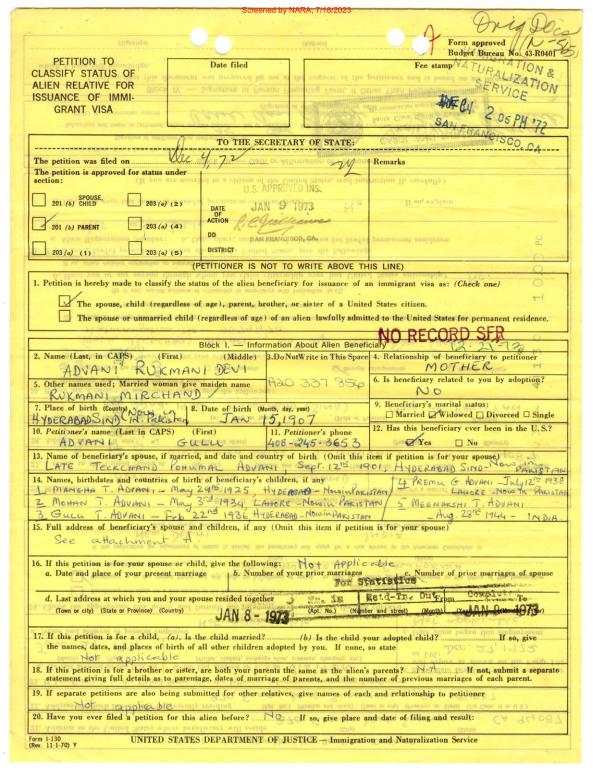 Screened by NARA, 7/18/2023
Orig Docs
PETITION TO
CLASSIFY STATUS OF
ALIEN RELATIVE FOR
ISSUANCE OF IMMI-
GRANT VISA
Date filed
Form approved
Budget Bureau No. 43-R0401
Fee stamp
IMMIGRATION &
NATURALIZATION
SERVICE
DEC 4 2 06 PM '72
SAN FRANCISCO, CA
TO THE SECRETARY OF STATE:
The petition was filed on Dec 4, 72
Remarks
The petition is approved for status under
section:
201 (b) SPOUSE, CHILD 203 (a) (2)
201 (b) PARENT 203 (a) (4)
203 (a) (1) 203 (a) (5)
DATE
OF
ACTION
DD
DISTRICT
U.S. APPROVED INS.
JAN 9 1973
SAN FRANCISCO, CA.
(PETITIONER IS NOT TO WRITE ABOVE THIS LINE)
1. Petition is hereby made to classify the status of the alien beneficiary for issuance of an immigrant visa as: (Check one)
The spouse, child (regardless of age), parent, brother, or sister of a United States citizen.
The spouse or unmarried child (regardless of age) of an alien lawfully admitted to the United States for permanent residence.
NO RECORD SFR
12-21-72
Block I. — Information About Alien Beneficiary
2. Name (Last, in CAPS) (First) (Middle)
ADVANI RUKMANI DEVI
3. Do Not Write in This Space
A20 337 856
4. Relationship of beneficiary to petitioner
MOTHER
5. Other names used; Married woman give maiden name
RUKMANI MIRCHAND
6. Is beneficiary related to you by adoption?
NO
7. Place of birth (Country)
HYDERABAD SIND Now in Pakistan
8. Date of birth (Month, day, year)
JAN 15, 1907
9. Beneficiary's marital status:
Married Widowed Divorced Single
10. Petitioner's name (Last in CAPS) (First)
ADVANI GULU
11. Petitioner's phone
408-245-3653
12. Has this beneficiary ever been in the U.S.?
Yes No
13. Name of beneficiary's spouse, if married, and date and country of birth (Omit this item if petition is for your spouse)
LATE TECKCHAND POHUMAL ADVANI, Sept. 12th 1901, HYDERABAD SIND - Now in PAKISTAN
14. Names, birthdates and countries of birth of beneficiary's children, if any
1 MANGHA T. ADVANI - May 29th 1925, HYDERABAD - Now in PAKISTAN
2 MOHAN T. ADVANI - May 3rd 1934, LAHORE - Now in PAKISTAN
3 GULU T. ADVANI - Feb 22nd 1936, HYDERABAD - Now in PAKISTAN
4 PREMU G. ADVANI - July 12th 1938
LAHORE - Now in PAKISTAN
5 MEENAKSHI T. ADVANI
- Aug. 28th 1944 - INDIA
15. Full address of beneficiary's spouse and children, if any (Omit this item if petition is for your spouse)
See attachment A
16. If this petition is for your spouse or child, give the following: Not Applicable
a. Date and place of your present marriage b. Number of your prior marriages c. Number of prior marriages of spouse
For Statistics
d. Last address at which you and your spouse resided together From To
(Town or city) (State or Province) (Country) (Apt. No.) (Number and street) (Month)
JAN 8 - 1973
Retd-In Out
JAN 8 - 1973
17. If this petition is for a child, (a). Is the child married? (b) Is the child your adopted child? If so, give
the names, dates, and places of birth of all other children adopted by you. If none, so state
Not applicable
18. If this petition is for a brother or sister, are both your parents the same as the alien's parents? N.A If not, submit a separate
statement giving full details as to parentage, dates of marriage of parents, and the number of previous marriages of each parent.
19. If separate petitions are also being submitted for other relatives, give names of each and relationship to petitioner
Not applicable
20. Have you ever filed a petition for this alien before? No If so, give place and date of filing and result:
Form I-130
(Rev. 11-1-70) Y
UNITED STATES DEPARTMENT OF JUSTICE — Immigration and Naturalization Service